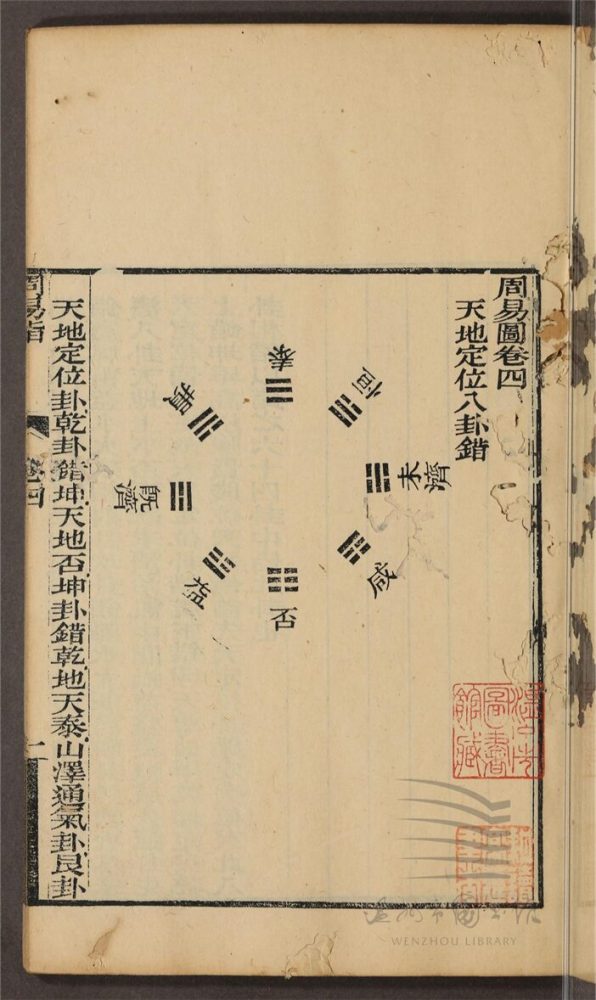 周易圖卷四
天地定位八卦錯
泰
恒
未濟
咸
否
益
既濟
損
天地定位卦乾卦錯坤天地否坤卦錯乾地天泰山澤通氣卦艮卦
周易指
卷四
一
溫州市圖書館藏
WENZHOU LIBRARY